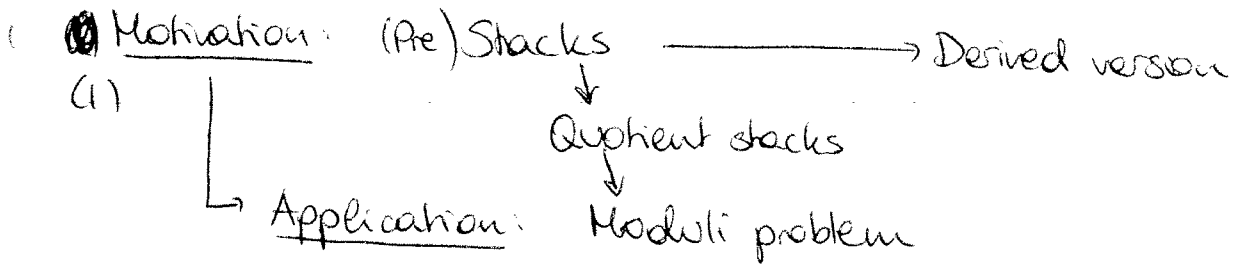 Motivation: (Pre) Stacks → Derived version
(1)
Quotient stacks
Application: Moduli problem